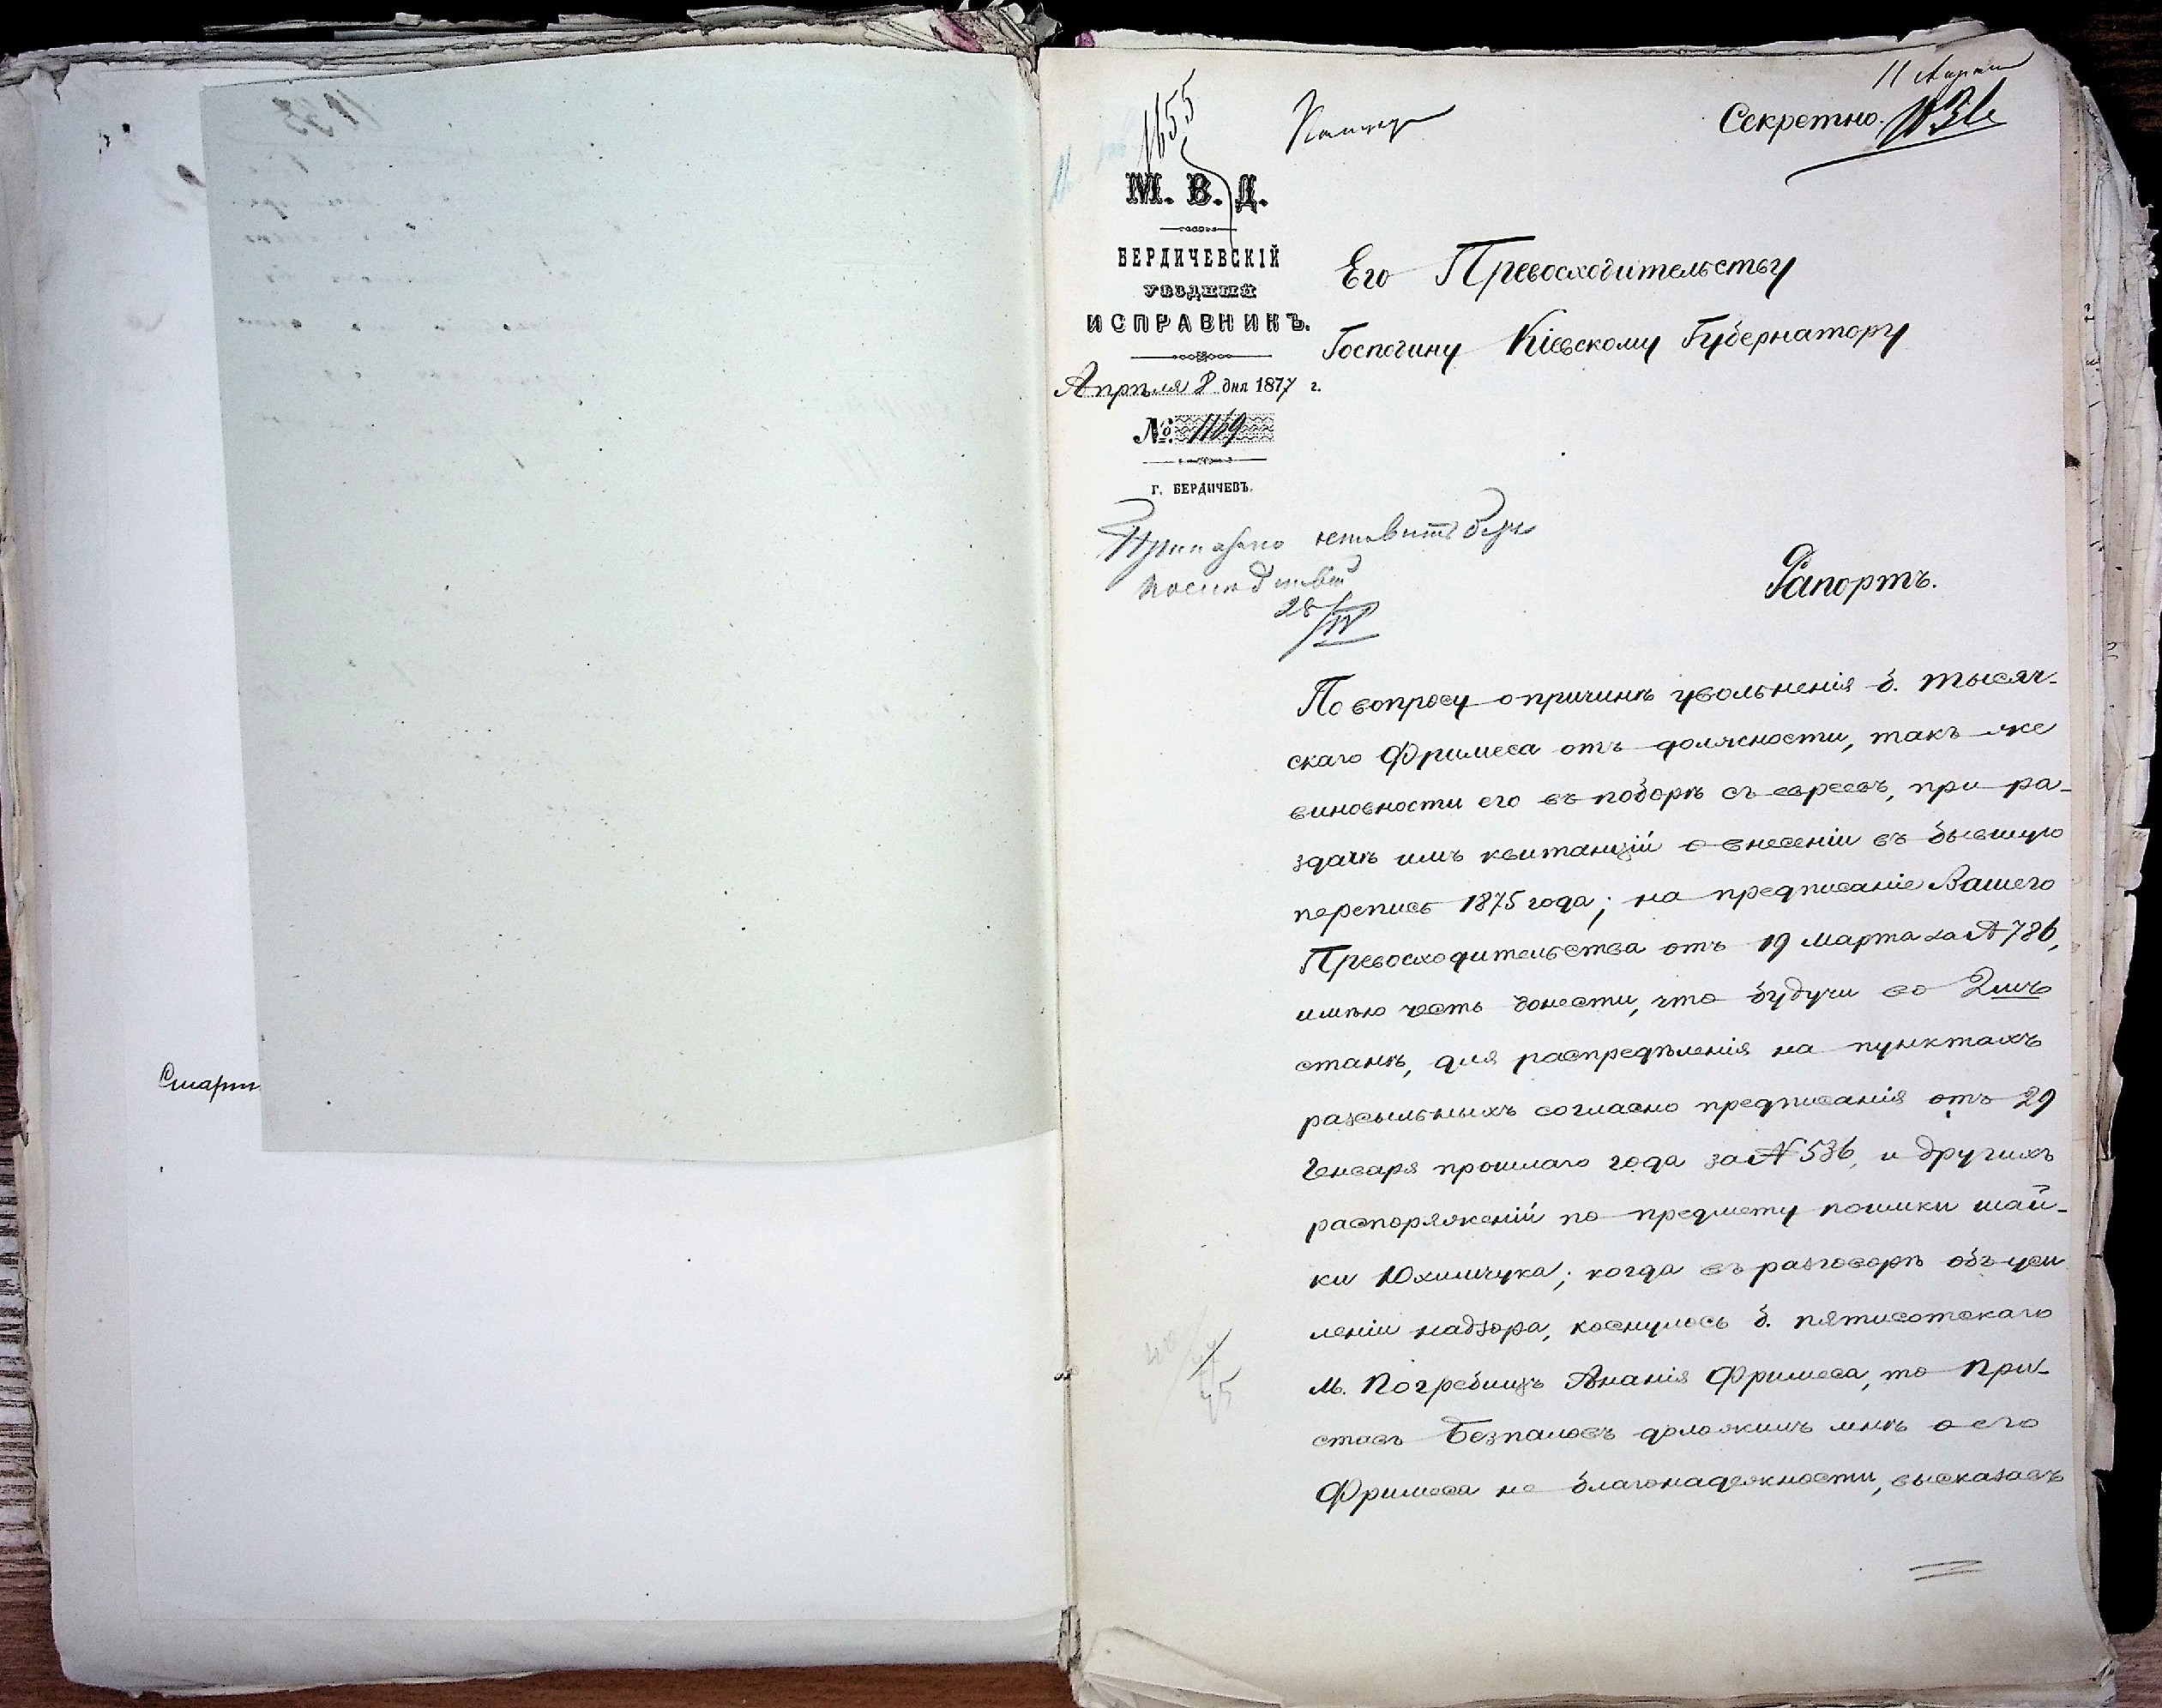 Старш
1655
11 Апреля
Секретно.
М. В. Д.
БЕРДИЧЕВСКІЙ
УѢЗДНЫЙ
ИСПРАВНИКЪ.
Апрѣля 8 дня 1877 г.
№ 1169
Г. БЕРДИЧЕВЪ.
Его Превосходительству
Господину Кіевскому Губернатору
Приказано оставить безъ
послѣдствій
28/IV
Рапортъ.
По вопросу о причинѣ увольненія б. тысяч-
скаго Фримеса отъ должности, такъ же
виновности его въ поборѣ съ евреевъ, при ра-
здачѣ имъ квитанцій о внесеніи въ бывшую
перепись 1875 года; на предписаніе Вашего
Превосходительства отъ 19 марта за № 786,
имѣю честь донести, что будучи во 2мъ
станѣ, для распредѣленія на пунктахъ
разсыльныхъ согласно предписанія отъ 29
Генваря прошлаго года за № 536, и другихъ
распоряженій по предмету поимки шай-
ки Юхимчука; когда въ разговорѣ объ уси
леніи надзора, коснулось б. пятисотскаго
м. Погребищъ Ананія Фримеса, то При-
ставъ Безпаловъ доложилъ мнѣ о его
Фримеса не благонадежности, высказавъ